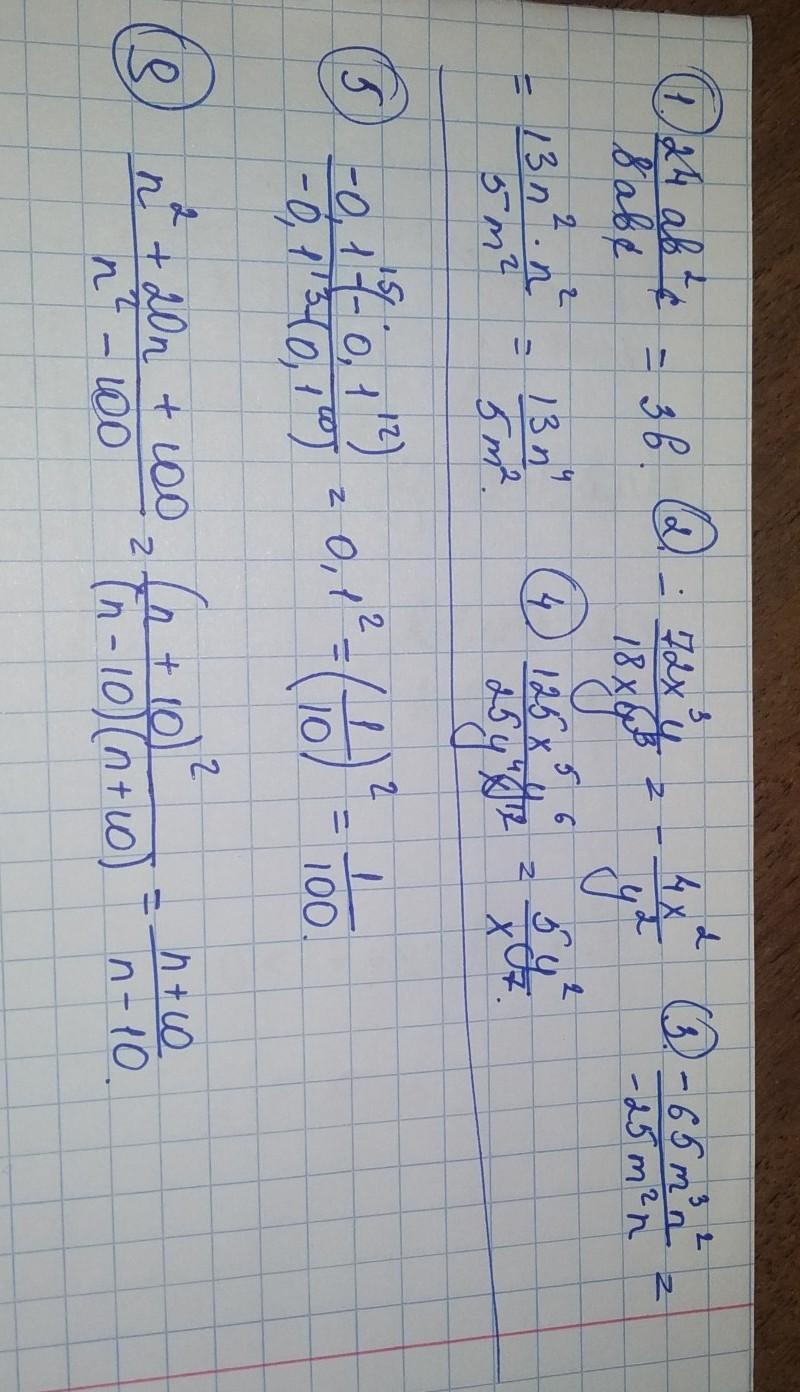 1. 24ab²c / 8abc = 3b. 2. - 72x³y / 18xy³ = - 4x² / y² 3. -65m³n² / -25m²n =
= 13n²·n² / 5m² = 13n⁴ / 5m². 4 125x⁵y⁶ / 25y⁴x¹² = 5y² / x⁷.
5 -0,1¹⁵·(-0,1¹²) / -0,1¹³·(0,1¹⁰) = 0,1² = (1/10)² = 1/100.
n² + 20n + 100 / n² - 100 = (n + 10)² / (n - 10)(n + 10) = n + 10 / n - 10.